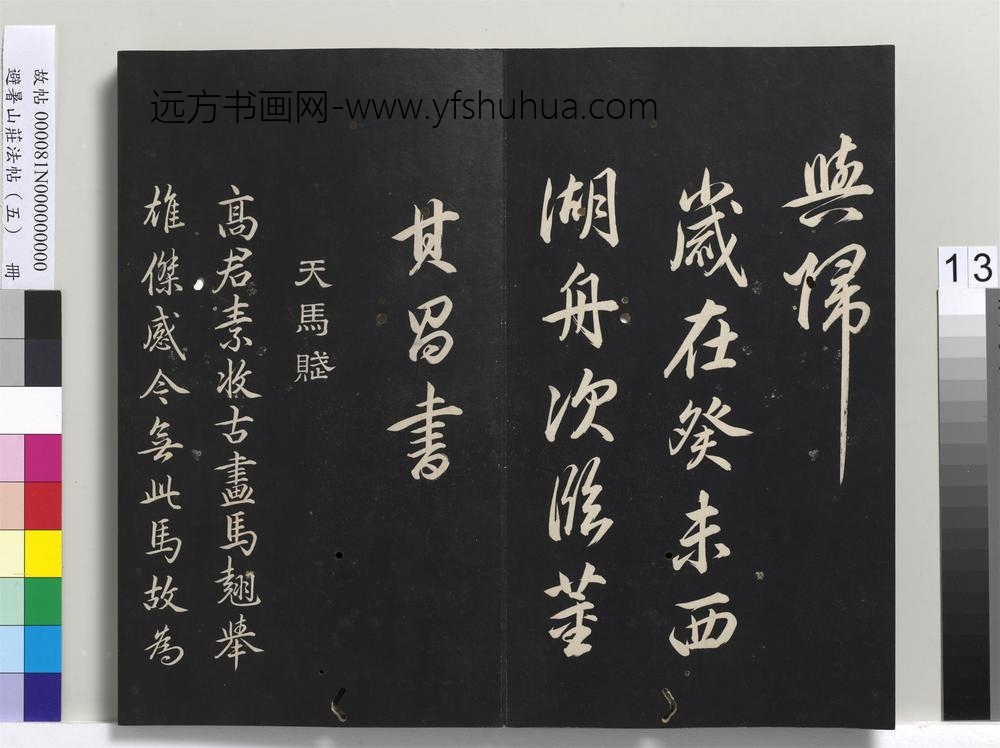 與歸
歲在癸未西
湖舟次臨董
其昌書
天馬賦
高君素收古畫馬翹舉
雄傑感今無此馬故為
远方书画网-www.yfshuhua.com
故帖 000081N000000000
避暑山莊法帖（五） 冊
13